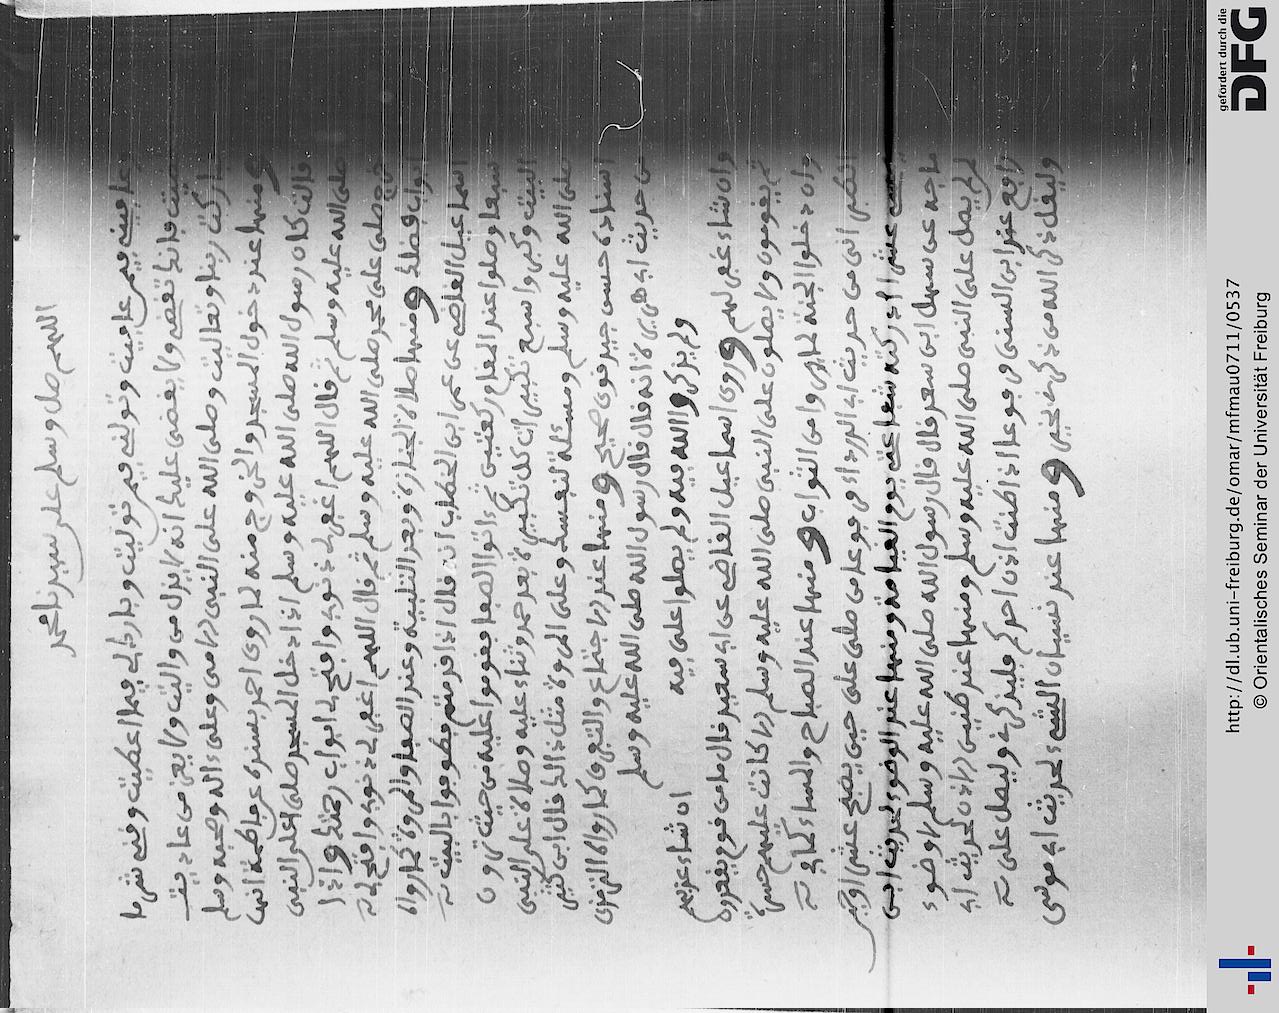 اللهم صل وسلم على سيدنا محمد
عافنى فيمن عافيت وتولنى فيمن توليت وبارك لى فيما اعطيت وقنى شر ما
قضيت فانك تقضى ولا يقضى عليك انه لا يذل من واليت ولا يعز من عاديت
تباركت ربنا وتعاليت وصلى الله على النبى وعلى ءاله وصحبه وسلم
ومنها عند دخول المسجد والخروج منه لما روى احمد بسنده عن فاطمة
قالت كان رسول الله صلى الله عليه وسلم اذا دخل المسجد صلى على النبى
صلى الله عليه وسلم ثم قال اللهم اغفر لى ذنوبى وافتح لى ابواب رحمتك واذا
خرج صلى على محمد صلى الله عليه وسلم ثم قال اللهم اغفر لى ذنوبى وافتح لى
ابواب فضلك ومنها صلاة الجنازة وبعد التلبية وعند الصفا والمروة لما رواه
اسماعيل القاضى عن عمر ابن الخطاب انه قال اذا قدمتم فطوفوا بالبيت
سبعا وصلوا عند المقام ركعتين ثم ائتوا الصفا فقوموا عليه من حيث ترون
البيت وكبروا سبع تكبيرات كل تكبيرة بعد حمد وثناء عليه وصلاة على النبى
صلى الله عليه وسلم ومسئلة لنفسك وعلى المروة مثل ذلك قال ابن كثير
اسناده حسن جيد قوى صحيح ومنها عند الاجتماع والتفرق لما رواه الترمذى
من حديث ابى هريرة انه قال قال رسول الله صلى الله عليه وسلم
ولم يذكروا الله فيه ولم يصلوا على فيه
ان شاء عذبهم
وان شاء غفر لهم وروى اسماعيل القاضى عن ابى سعيد قال ما من قوم يقعدون
ثم يقومون ولا يصلون على النبى صلى الله عليه وسلم الا كانت عليهم حسرة
وان دخلوا الجنة لما يرون من الثواب ومنها عند الصباح والمساء لما فى
الطبرانى من حديث ابى الدرداء مرفوعا من صلى على حين يصبح عشرا وحين
يمسى عشرا ادركته شفاعتى يوم القيامة ومنها عند الوضوء لحديث ابن
ماجه عن سهل ابن سعد قال قال رسول الله صلى الله عليه وسلم لا وضوء
لمن لم يصل على النبى صلى الله عليه وسلم ومنها عند طنين الاذن لحديث ابى
رافع عند ابن السنى مرفوعا اذا طنت اذن احدكم فليذكرنى وليصل على
وليقل ذكر الله من ذكرنى بخير ومنها عند نسيان الشىء لحديث ابى موسى
gefördert durch die
DFG
http://dl.ub.uni-freiburg.de/omar/mfmau0711/0537
© Orientalisches Seminar der Universität Freiburg